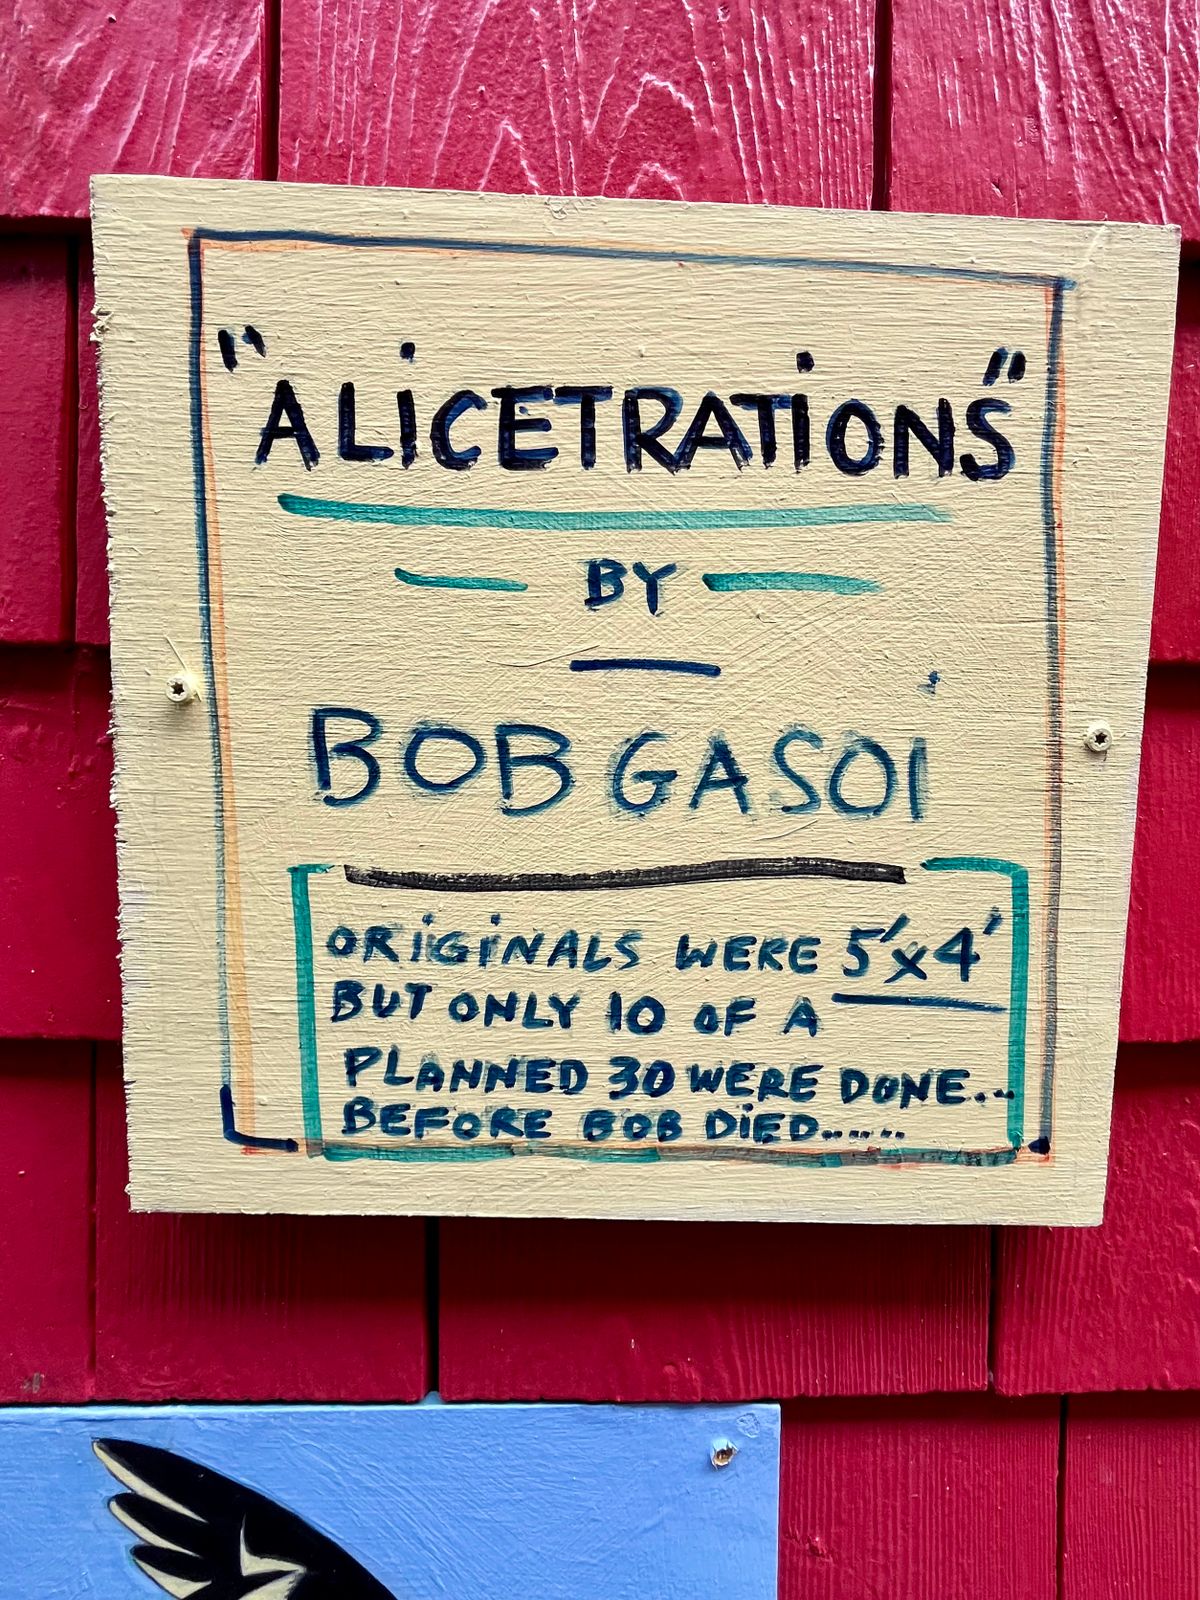 "ALiCETRATiONS"
BY
BOB GASOi
ORiGiNALS WERE 5'x4'
BUT ONLY 10 OF A
PLANNED 30 WERE DONE...
BEFORE BOB DiED......